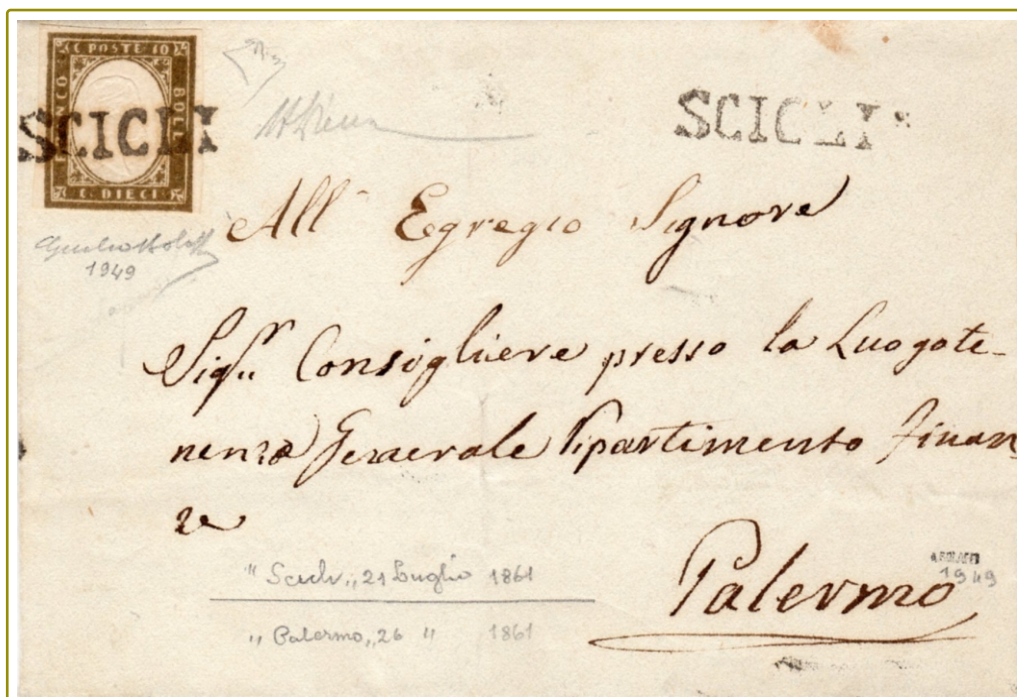 C. POSTE 10
FRANCO BOLLO
C. DIECI
SCICLI
SCICLI
1949
All' Egregio Signore
Sig.r Consigliere presso la Luogote-
nenza Generale Dipartimento Finan
ze
"Scicli,, 21 Luglio 1861
,,Palermo,, 26 " 1861
Palermo
1949